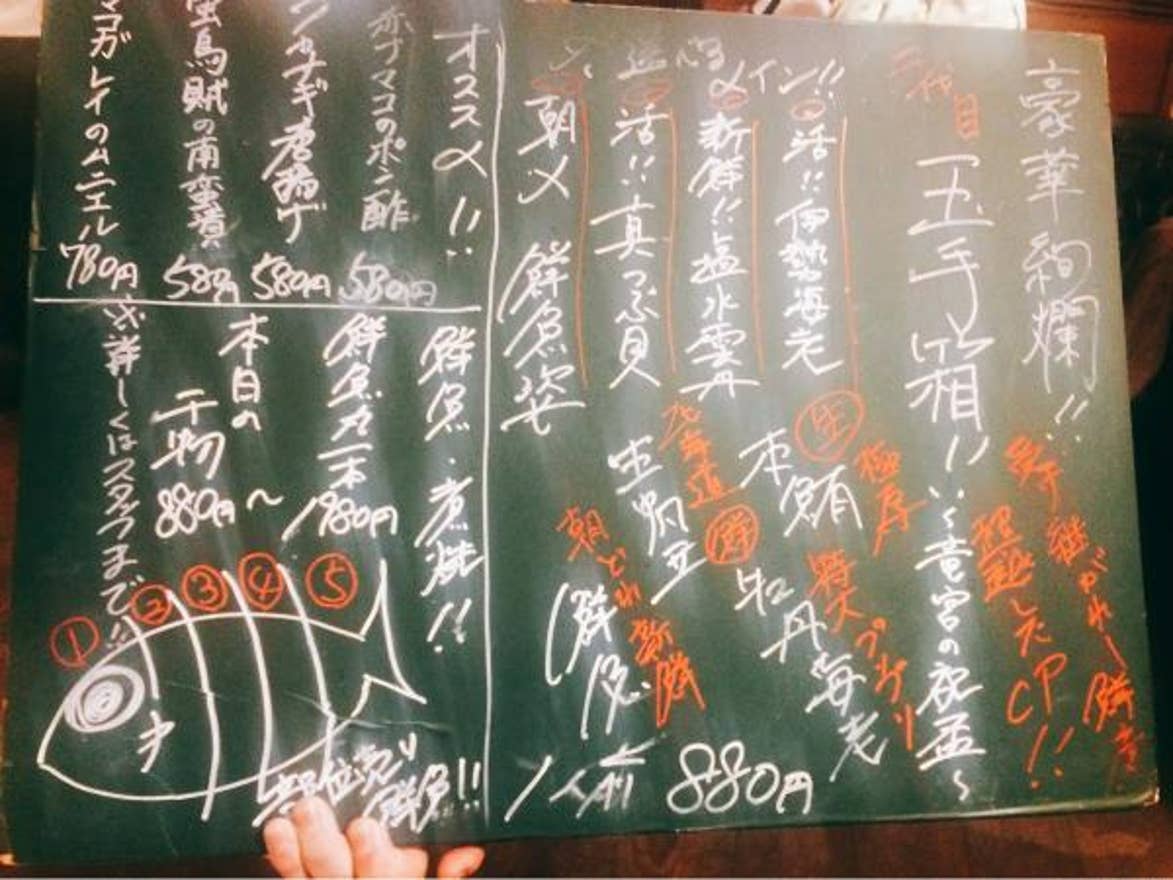 豪華絢爛!!
三代目
玉手箱!!
〜竜宮の祝盃〜
超越したCP!!
選べる
メイン!!
活!!伊勢海老
新鮮!!塩水雲丹
活!!真つぶ貝
朝〆鮮魚姿
生
本鮪
極厚
特大プリプリ
牡丹海老
北海道
生帆立
朝どれ新鮮
1人前 880円
オススメ!!
赤ナマコのポン酢 580円
唐揚げ 580円
蛍烏賊の南蛮漬 580円
マコガレイのムニエル 780円
鮮魚・煮焼!!
鮮魚丸一本 1980円
本日の
干物
880円〜
※詳しくはスタッフまで!!
①
②
③
④
⑤